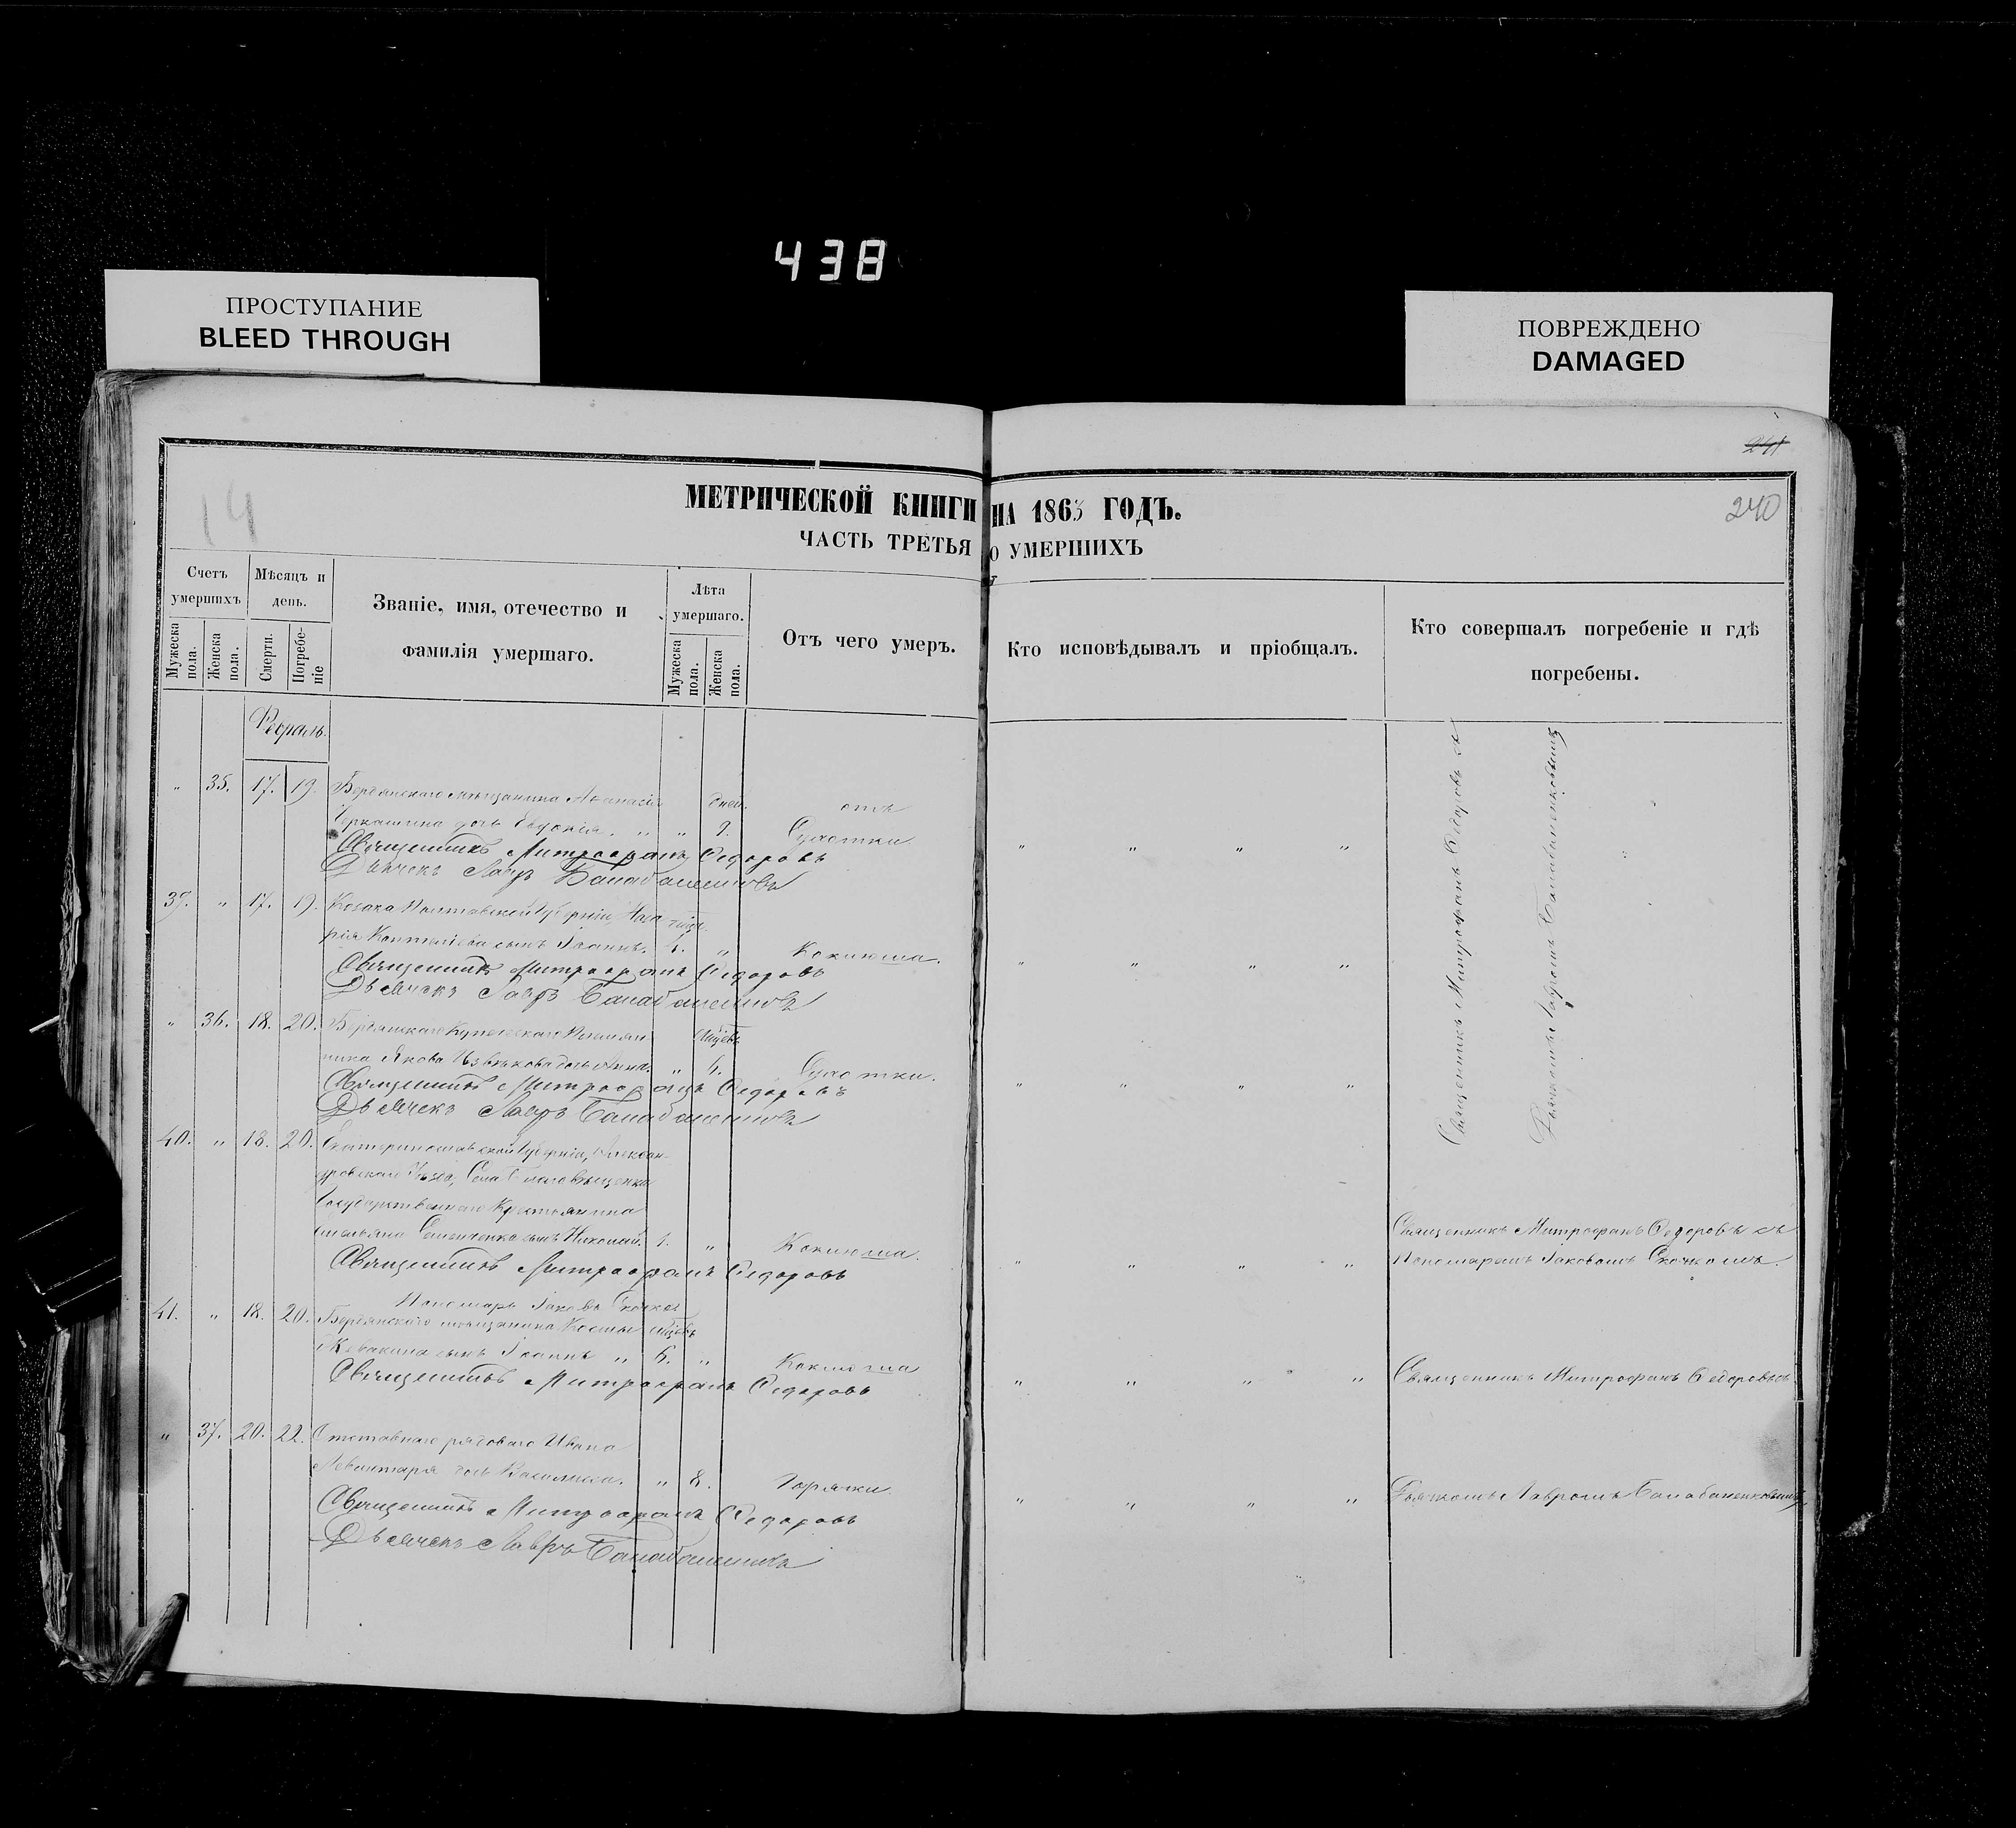 438
ПРОСТУПАНИЕ
BLEED THROUGH
ПОВРЕЖДЕНО
DAMAGED
241
14
240
МЕТРИЧЕСКОЙ КНИГИ НА 1863 ГОДЪ.
ЧАСТЬ ТРЕТЬЯ О УМЕРШИХЪ
Счетъ умершихъ
Мужеска пола.
Женска пола.
Мѣсяцъ и день.
Смерти.
Погребеніе
Званіе, имя, отечество и фамилія умершаго.
Лѣта умершаго.
Мужеска пола.
Женска пола.
Отъ чего умеръ.
Кто исповѣдывалъ и пріобщалъ.
Кто совершалъ погребеніе и гдѣ погребены.
Февраль.
" 35. 17. 19. Бердянскаго мѣщанина Аѳанасія дней. отъ
Черкашина дочь Евдокія. " " 9. Сухотки
Священникъ Митрофанъ Ѳедоровъ
Дьячекъ Лавръ Балабаненковъ
39. " 17. 19. Козака Полтавской Губерніи, Наза-
рія сынъ Іоаннъ. 4. " Коклюша.
Священникъ Митрофанъ Ѳедоровъ
Дьячекъ Лавръ Балабаненковъ
" 36. 18. 20. Бердянскаго Купеческаго Племян- мѣсцевъ
ника Якова дочь Анна. " 4. Сухотки.
Священникъ Митрофанъ Ѳедоровъ
Дьячекъ Лавръ Балабаненковъ
Священникъ Митрофанъ Ѳедоровъ съ
Дьячкомъ Лавромъ Балабаненковымъ
40. " 18. 20. Екатеринославской Губерніи, Александ-
ровскаго Уѣзда, Села Благовѣщенки
Государственнаго Крестьянина
Емельяна сынъ Николай. 1. " Коклюша.
Священникъ Митрофанъ Ѳедоровъ
Пономарь Іаковъ Скочко
Священникъ Митрофанъ Ѳедоровъ съ
Пономаремъ Іаковомъ Скочкомъ.
41. " 18. 20. Бердянскаго мѣщанина Космы мѣсцевъ
сынъ Іоаннъ " 6. " Коклюша
Священникъ Митрофанъ Ѳедоровъ
Священникъ Митрофанъ Ѳедоровъ съ
" 37. 20. 22. Отставнаго рядоваго Ивана
дочь Василиса. " 8. Горячки.
Священникъ Митрофанъ Ѳедоровъ
Дьячекъ Лавръ Балабаненковъ
Дьячкомъ Лавромъ Балабаненковымъ